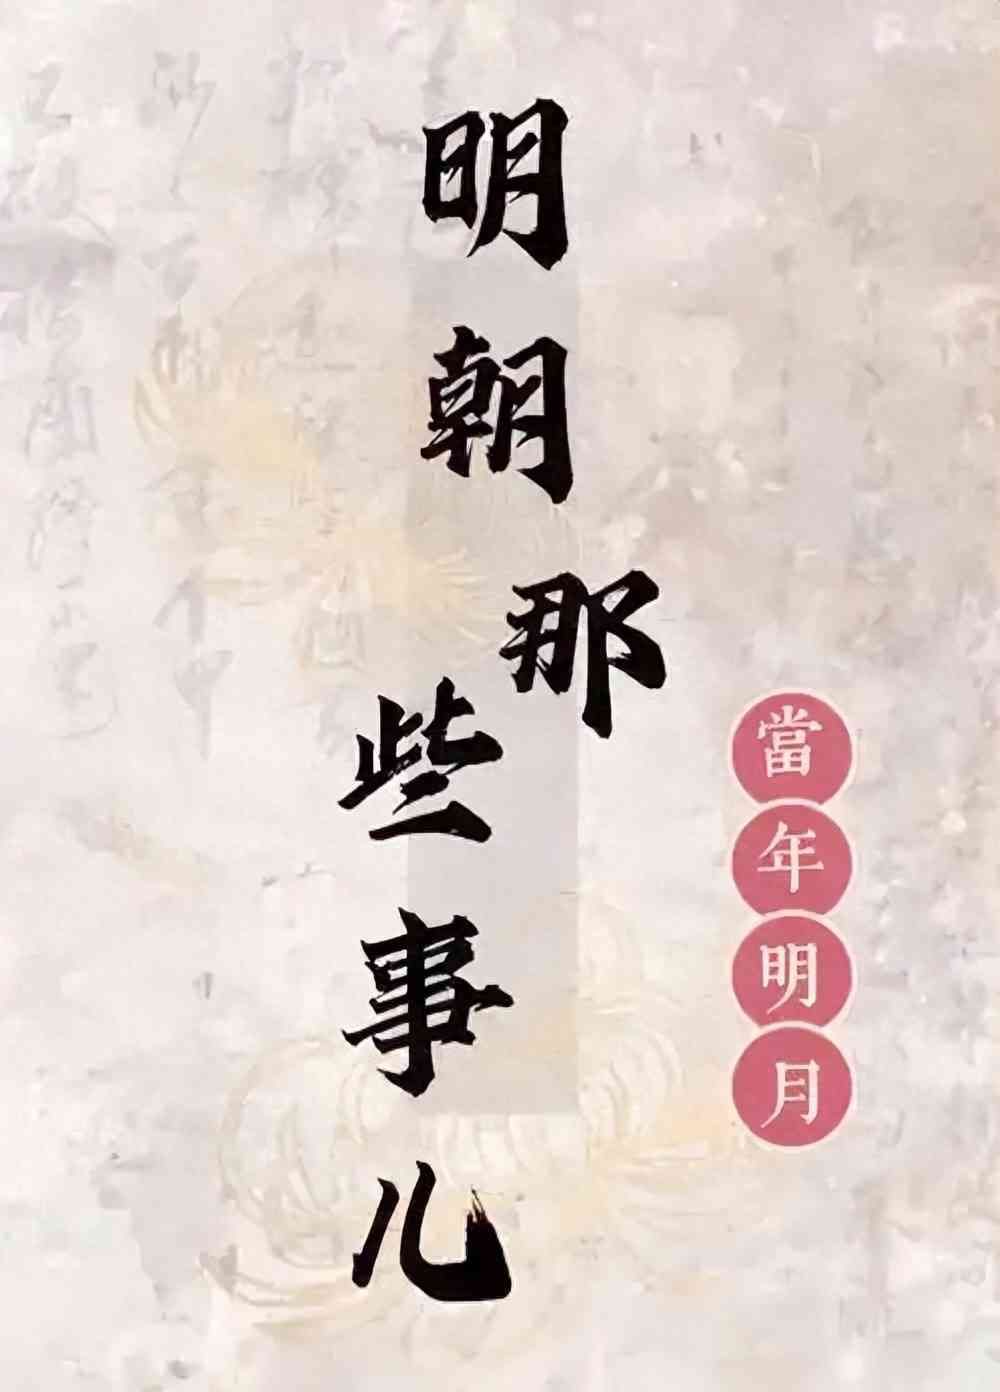 明朝那些事儿
當年明月